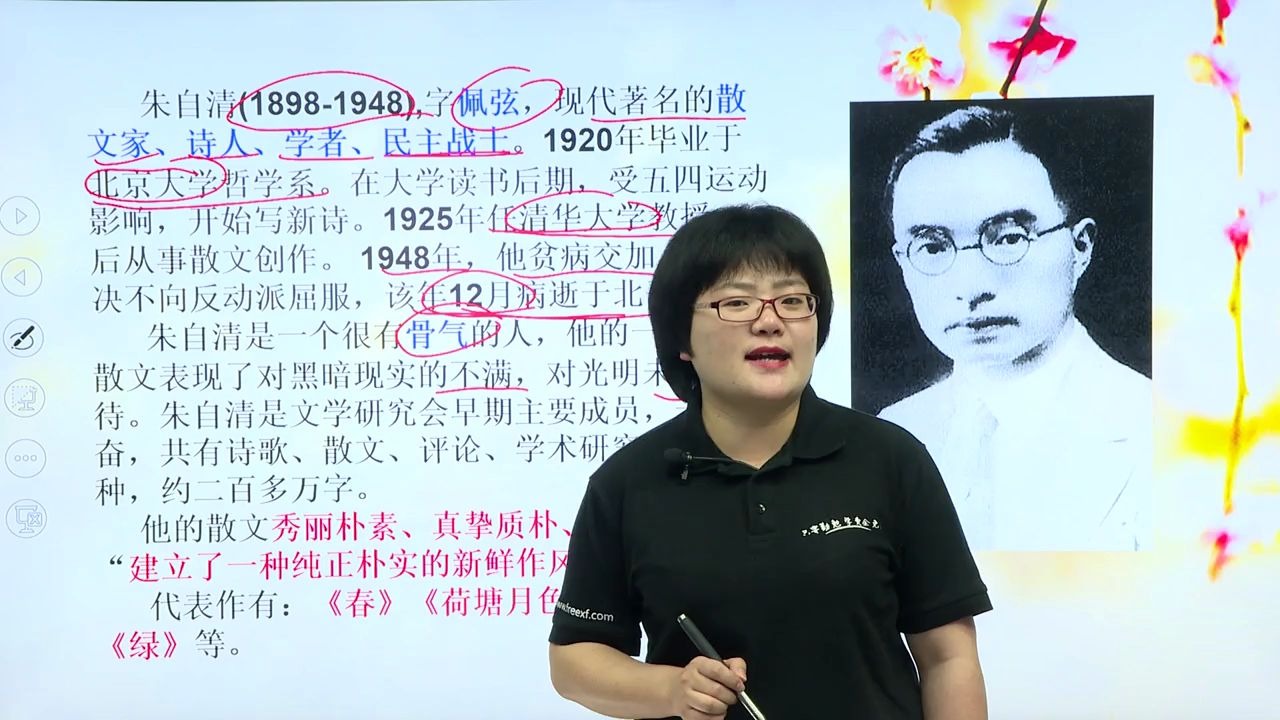 朱自清(1898-1948),字佩弦，现代著名的散
文家、诗人、学者、民主战士。1920年毕业于
北京大学哲学系。在大学读书后期，受五四运动
影响，开始写新诗。1925年任清华大学教授
后从事散文创作。 1948年，他贫病交加
决不向反动派屈服，该年12月病逝于北
朱自清是一个很有骨气的人，他的一
散文表现了对黑暗现实的不满，对光明未
待。朱自清是文学研究会早期主要成员，一
奋，共有诗歌、散文、评论、学术研究
种，约二百多万字。
他的散文秀丽朴素、真挚质朴、
“建立了一种纯正朴实的新鲜作风
代表作有：《春》《荷塘月色
《绿》等。
www.freexf.com